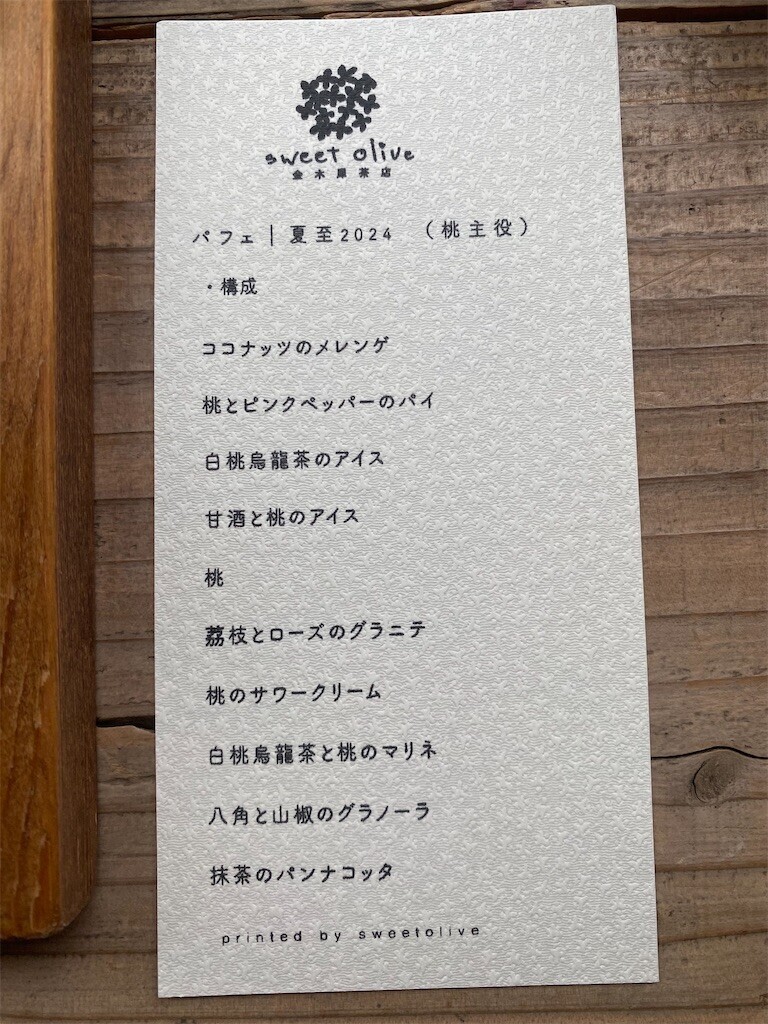 sweet olive
金木犀茶店
パフェ｜夏至2024 （桃主役）
・構成
ココナッツのメレンゲ
桃とピンクペッパーのパイ
白桃烏龍茶のアイス
甘酒と桃のアイス
桃
荔枝とローズのグラニテ
桃のサワークリーム
白桃烏龍茶と桃のマリネ
八角と山椒のグラノーラ
抹茶のパンナコッタ
printed by sweetolive